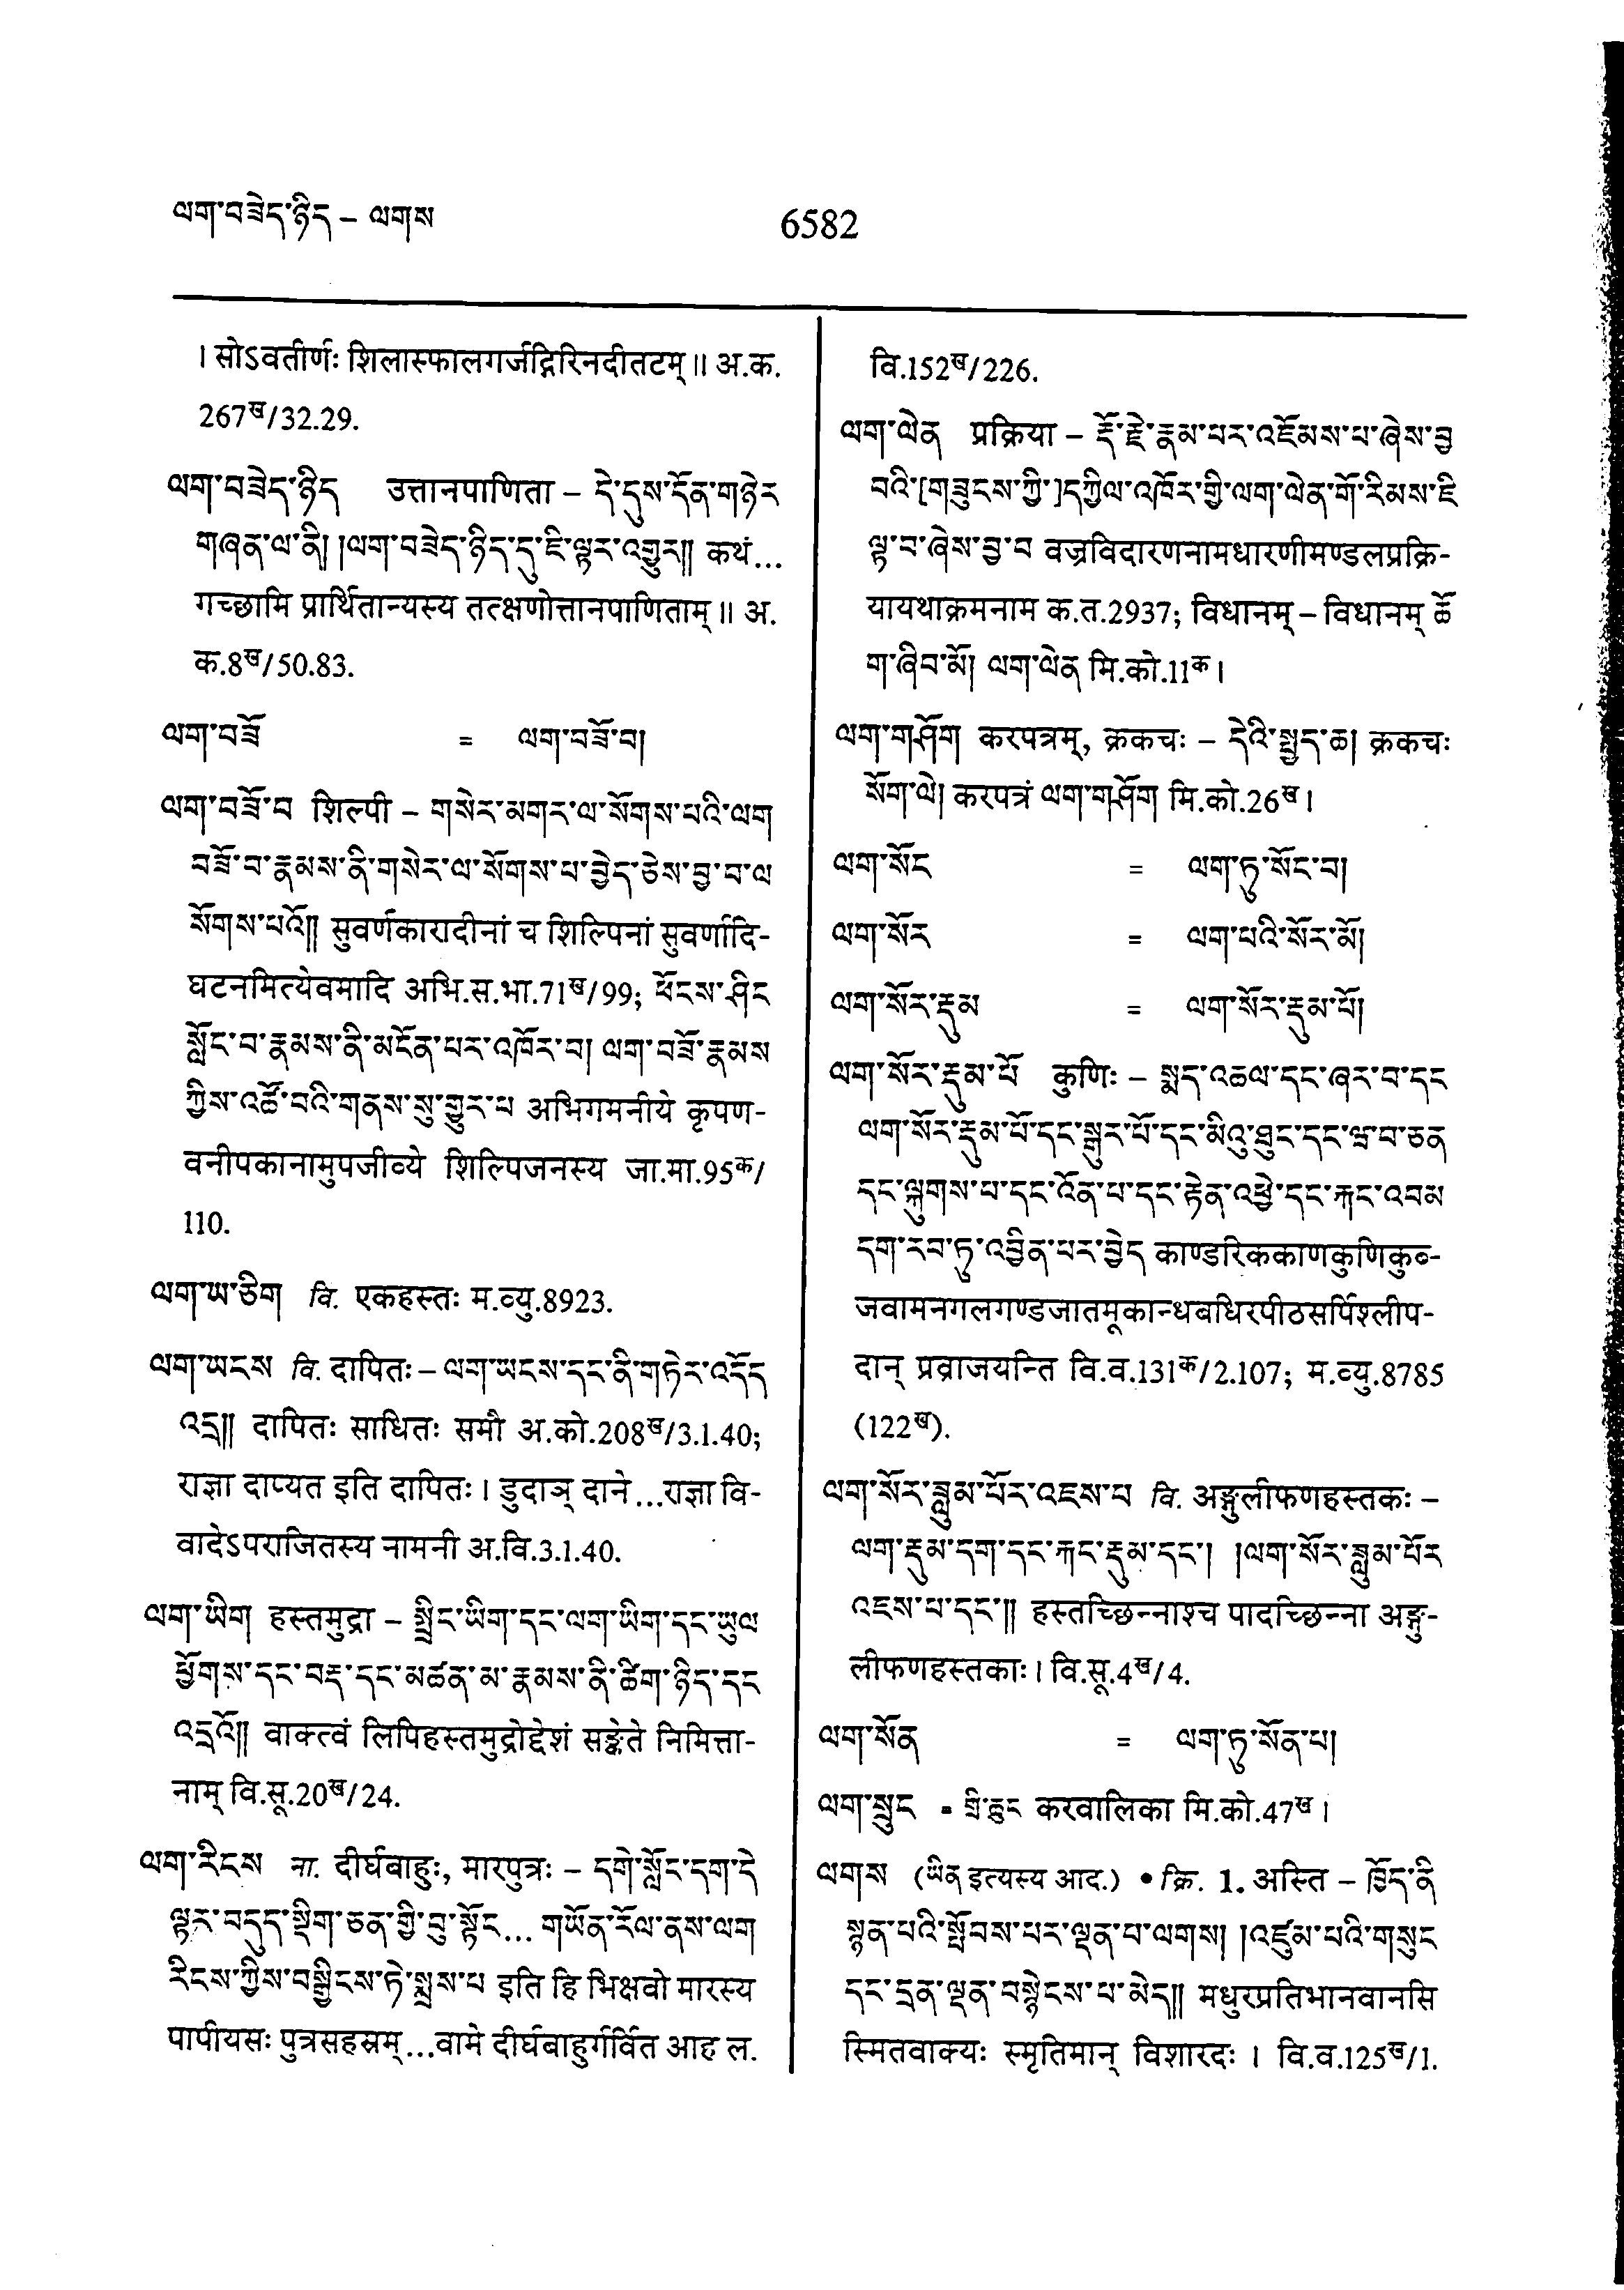 ལག་བཟེད་ཉིད – ལགས
6582
। सोऽवतीर्णः शिलास्फालगर्जद्गिरिनदीतटम्॥ अ.क.
267ख/32.29.
ལག་བཟེད་ཉིད उत्तानपाणिता – དེ་དུས་དོན་གཉེར
གཞན་ལ་ནི། །ལག་བཟེད་ཉིད་དུ་ཇི་ལྟར་འགྱུར།། कथं...
गच्छामि प्रार्थितान्यस्य तत्क्षणोत्तानपाणिताम्॥ अ.
क.8ख/50.83.
ལག་བཟོ = ལག་བཟོ་བ།
ལག་བཟོ་བ शिल्पी – གསེར་མགར་ལ་སོགས་པའི་ལག
བཟོ་བ་རྣམས་ནི་གསེར་ལ་སོགས་པ་བྱེད་ཅེས་བྱ་བ་ལ
སོགས་པའོ།། सुवर्णकारादीनां च शिल्पिनां सुवर्णादि-
घटनमित्येवमादि अभि.स.भा.71ख/99; ཕོངས་ཤིང
སློང་བ་རྣམས་ནི་མངོན་པར་འཁོར་བ། ལག་བཟོ་རྣམས
ཀྱིས་འཚོ་བའི་གནས་སུ་གྱུར་པ अभिगमनीये कृपण-
वनीपकानामुपजीव्ये शिल्पिजनस्य जा.मा.95क/
110.
ལག་ཡ་ཅིག वि. एकहस्तः म.व्यु.8923.
ལག་ཡངས वि. दापितः – ལག་ཡངས་དང་ནི་གཏེར་འདོད
འདྲ།། दापितः साधितः समौ अ.को.208ख/3.1.40;
राज्ञा दाप्यत इति दापितः। डुदाञ् दाने...राज्ञा वि-
वादेऽपराजितस्य नामनी अ.वि.3.1.40.
ལག་ཡིག हस्तमुद्रा – སྤྲིང་ཡིག་དང་ལག་ཡིག་དང་ཡུལ
ཕྱོགས་དང་བརྡ་དང་མཚན་མ་རྣམས་ནི་ཚིག་ཉིད་དང
འདྲའོ།། वाक्त्वं लिपिहस्तमुद्रोद्देशं सङ्केते निमित्ता-
नाम् वि.सू.20ख/24.
ལག་རིངས ना. दीर्घबाहुः, मारपुत्रः – དགེ་སློང་དག་དེ
ལྟར་བདུད་སྡིག་ཅན་གྱི་བུ་སྟོང... གཡོན་རོལ་ནས་ལག
རིངས་ཀྱིས་བསྒྱིངས་ཏེ་སྨྲས་པ इति हि भिक्षवो मारस्य
पापीयसः पुत्रसहस्रम्...वामे दीर्घबाहुर्गर्वित आह ल.
वि.152ख/226.
ལག་ལེན प्रक्रिया – རྡོ་རྗེ་རྣམ་པར་འཇོམས་པ་ཞེས་བྱ
བའི་[གཟུངས་ཀྱི་]དཀྱིལ་འཁོར་གྱི་ལག་ལེན་གོ་རིམས་ཇི
ལྟ་བ་ཞེས་བྱ་བ वज्रविदारणनामधारणीमण्डलप्रक्रि-
यायथाक्रमनाम क.त.2937; विधानम् – विधानम् ཆོ
ག་ཞིབ་མོ། ལག་ལེན मि.को.11क।
ལག་གཤོག करपत्रम्, क्रकचः – དེའི་སྤྱད་ཆ། क्रकचः
སོག་ལེ། करपत्रं ལག་གཤོག मि.को.26ख।
ལག་སོང = ལག་ཏུ་སོང་བ།
ལག་སོར = ལག་པའི་སོར་མོ།
ལག་སོར་རྡུམ = ལག་སོར་རྡུམ་པོ།
ལག་སོར་རྡུམ་པོ कुणिः – སྨད་འཆལ་དང་ཞར་བ་དང
ལག་སོར་རྡུམ་པོ་དང་སྒུར་པོ་དང་མིའུ་ཐུང་དང་ལྦ་བ་ཅན
དང་ལྐུགས་པ་དང་འོན་པ་དང་རྟེན་འཕྱེ་དང་རྐང་འབམ
དག་རབ་ཏུ་འབྱིན་པར་བྱེད काण्डरिककाणकुणिकुब्-
जवामनगलगण्डजातमूकान्धबधिरपीठसर्पिश्लीप-
दान् प्रव्राजयन्ति वि.व.131क/2.107; म.व्यु.8785
(122ख).
ལག་སོར་ཟླུམ་པོར་འཇས་པ वि. अङ्गुलीफणहस्तकः –
ལག་རྡུམ་དག་དང་རྐང་རྡུམ་དང་། །ལག་སོར་ཟླུམ་པོར
འཇས་པ་དང་།། हस्तच्छिन्नाश्च पादच्छिन्ना अङ्गु-
लीफणहस्तकाः। वि.सू.4ख/4.
ལག་སོན = ལག་ཏུ་སོན་པ།
ལག་སྲུང = གྲི་ཆུང करवालिका मि.को.47ख।
ལགས (ཡིན इत्यस्य आद.) • क्रि. 1. अस्ति – ཁྱོད་ནི
སྙན་པའི་སྤོབས་པར་ལྡན་པ་ལགས། །འཛུམ་པའི་གསུང
དང་དྲན་ལྡན་བསྙེངས་པ་མེད།། मधुरप्रतिभानवानसि
स्मितवाक्यः स्मृतिमान् विशारदः। वि.व.125ख/1.